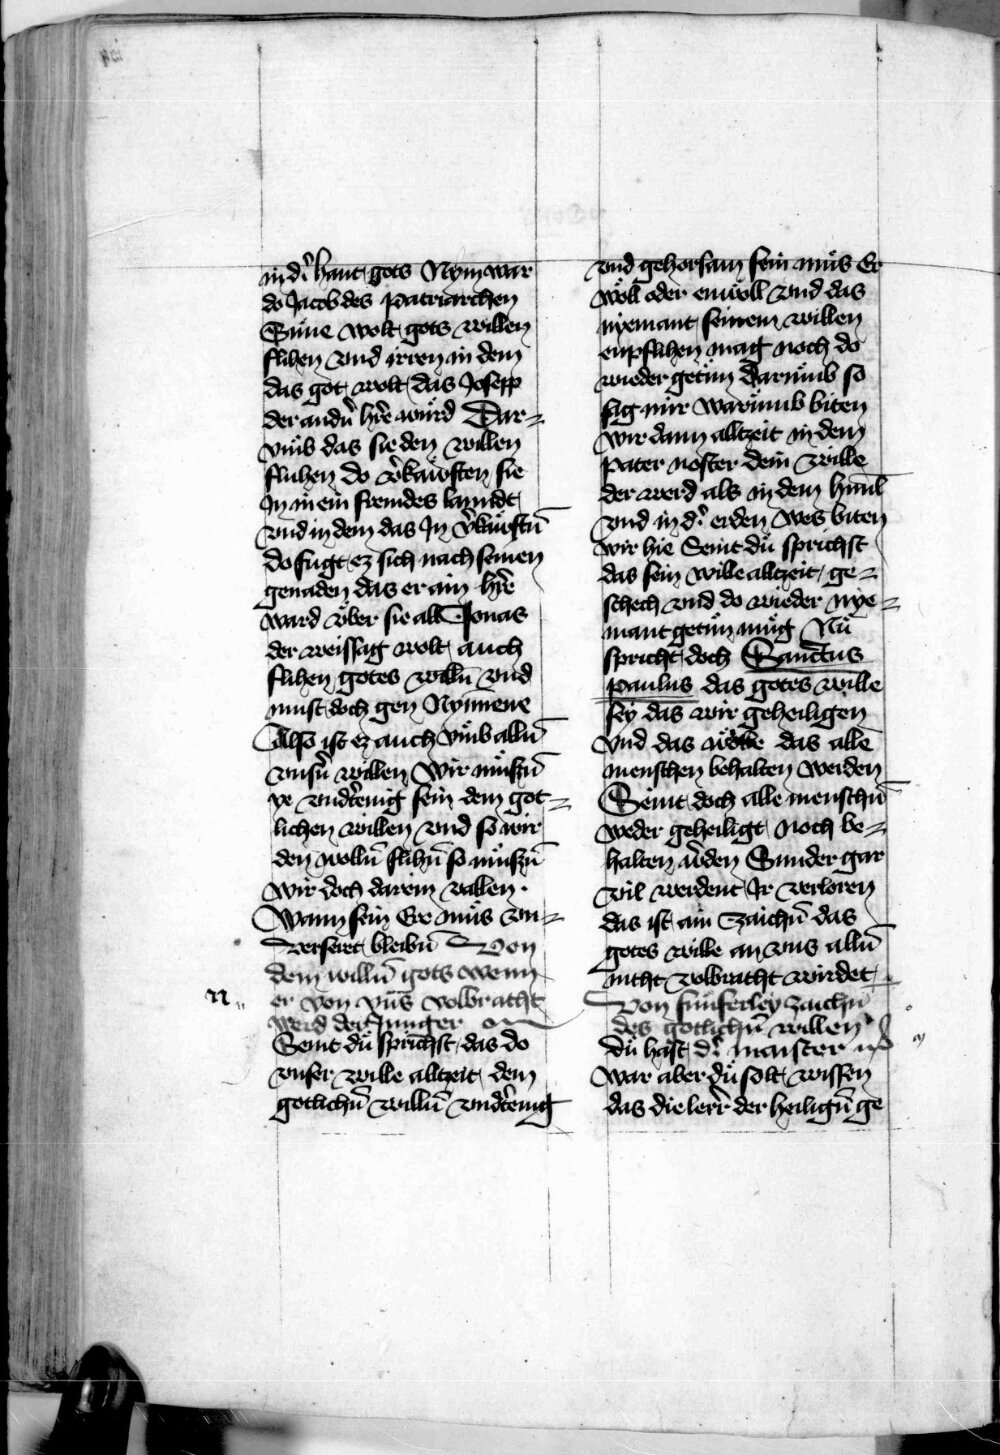 in dˀ hant gots Nym war
do Jacob des patriarchen
Süne wolt gots willen
flihen vnd irren in dem
das got wolt das Joseph
der andn̄ hˀre würd Dar-
vmb das sie den willen
fluhen do vˀkauften sie
Jn in ein fremdes lanndt
vnd in dem das Jn vˀkauftn̄
do fugt ez sich nach seinen
genaden das er ain hˀre
ward vber sie all Jonas
der weissag wolt auch
flihen gotes willn̄ vnd
must doch gen Nynneue
Also ist ez auch vmb alln̄
vnsn̄ willen Wir müssn̄
ye vndˀtenig sein dem got-
lichen willen vnd so wir
den wolln̄ flihn̄ so müssn̄
wir doch darein vallen.
Wann sein Ere mus vn-
verseret bleibn̄ Von
dem willn̄ gots wenn
er von vns volbracht
werd der Junger
Seint du sprichst das do
vnser wille alltzeit dem
gotlichn̄ willn̄ vndˀtenig
vnd gehorsam sein mus Er
wöll oder enwöll vnd das
nyemant seinem willen
enpflihen mag noch do
wieder getün Darumb so
sag mir warumb biten
wir dann alltzeit in dem
pater noster dein wille
der werd als in dem himl̄
vnd in dˀ erden Wes biten
wir hie Seint du sprichst
das sein wille alltzeit ge-
schech vnd do wieder nye-
mant getün müg Nu
spricht doch Sanctus
paulus das gotes wille
sey das wir geheiligen
vnd das das alle
menschen behalten werden
Seint doch alle menschn̄
weder geheiligt noch be-
halten wˀden Sunder gar
vil werdent Jr verloren
das ist ain zaichn̄ das
gotes wille an vns alln̄
nicht volbracht wirdet
Von funferley zaichn̄
des gotlichn̄ willen
du hast dˀ maister
war aber du solt wissen
das die lerˀ der heilign̄ ge